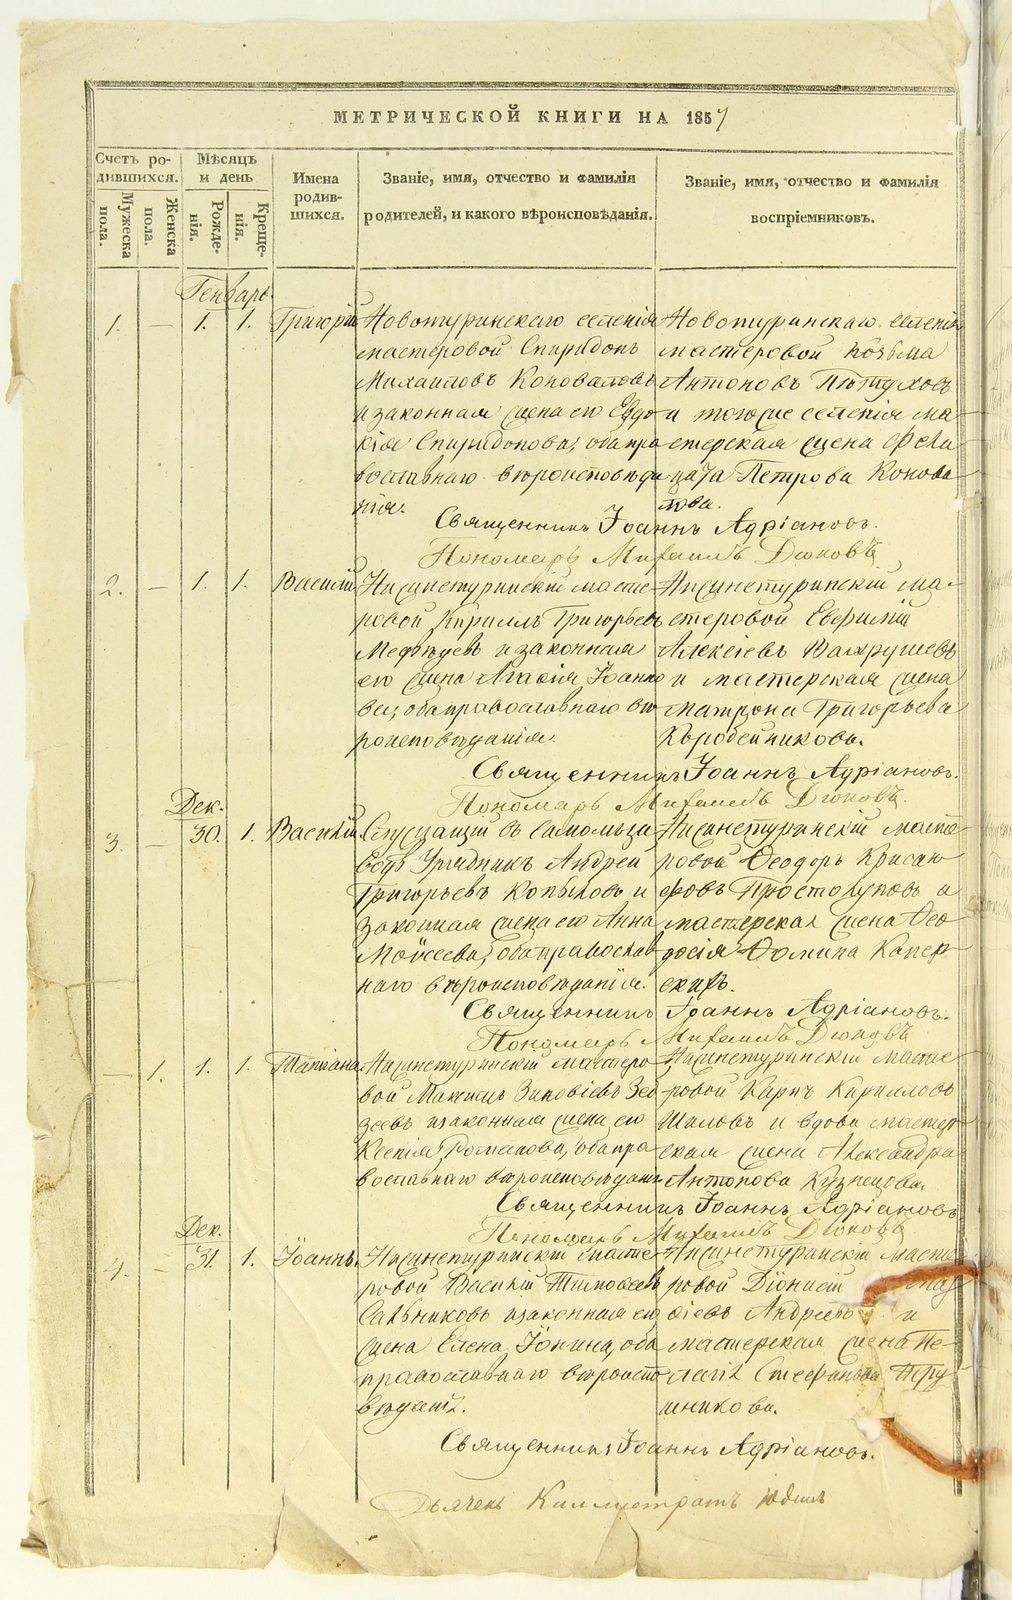 МЕТРИЧЕСКОЙ КНИГИ НА 1857
Счетъ ро-
дившихся.
Мужеска
пола.
Женска
пола.
Мѣсяцъ
и день
Рожде-
нія.
Креще-
нія.
Имена
родив-
шихся.
Званіе, имя, отчество и фамилія
родителей, и какого вѣроисповѣданія.
Званіе, имя, отчество и фамилія
воспріемниковъ.
Генварь
1. — 1. 1. Григорій
Новотуринскаго селенія
мастеровой Спиридонъ
Михаиловъ Коноваловъ
и законная жена его Евдо-
кія Спиридонова, оба пра-
вославнаго вѣроисповѣда-
нія.
Новотуринскаго селенія
мастеровой Козьма
Антоновъ Пѣтуховъ
и тогоже селенія ма-
стерская жена Фели-
цата Петрова Конова-
лова.
Священникъ Іоаннъ Адріановъ.
Пономарь Михаилъ Дюковъ
2. — 1. 1. Василій
Нижнетуринскій масте-
ровой Кирилъ Григорьевъ
Медвѣдевъ и законная
его жена Агафія Іоанно-
ва, оба православнаго вѣ-
роисповѣданія.
Нижнетуринскій ма-
стеровой Евфимій
Алексіевъ Вахрушевъ
и мастерская жена
Матрона Григорьева
Коробейникова.
Священникъ Іоаннъ Адріановъ.
Пономарь Михаилъ Дюковъ.
Дек.
3. — 30. 1. Василій.
Служащій въ
Урядникъ Андрей
Григорьевъ Копыловъ и
законная жена его Анна
Моѵсеева, оба православ-
наго вѣроисповѣданія.
Нижнетуринскій масте-
ровой Ѳеодоръ Крисан-
фовъ Простолуповъ и
мастерская жена Ѳео-
досія Ѳомина
Священникъ Іоаннъ Адріановъ.
Пономарь Михаилъ Дюковъ
— 1. 1. 1. Татіана
Нижнетуринскій мастеро-
вой Максимъ Зиновіевъ
и законная жена его
Ксенія Романова, оба пра-
вославнаго вѣроисповѣданія
Нижнетуринскій масте-
ровой Карпъ Кирилловъ
Шиловъ и вдова мастер-
ская жена Александра
Антонова Кузнецова.
Священникъ Іоаннъ Адріановъ
Пономарь Михаилъ Дюковъ
Дек.
4. — 31. 1. Іоаннъ.
Нижнетуринскій масте-
ровой Василій Тимофеевъ
Сальниковъ и законная его
жена Елена Іонина, оба
православнаго вѣроиспо-
вѣданія.
Нижнетуринскій масте-
ровой Діонисій
Андреевъ и
мастерская жена Пе-
лагія Стефанова Тру-
шникова.
Священникъ Іоаннъ Адріановъ.
Дьячекъ Каллистратъ Юдинъ